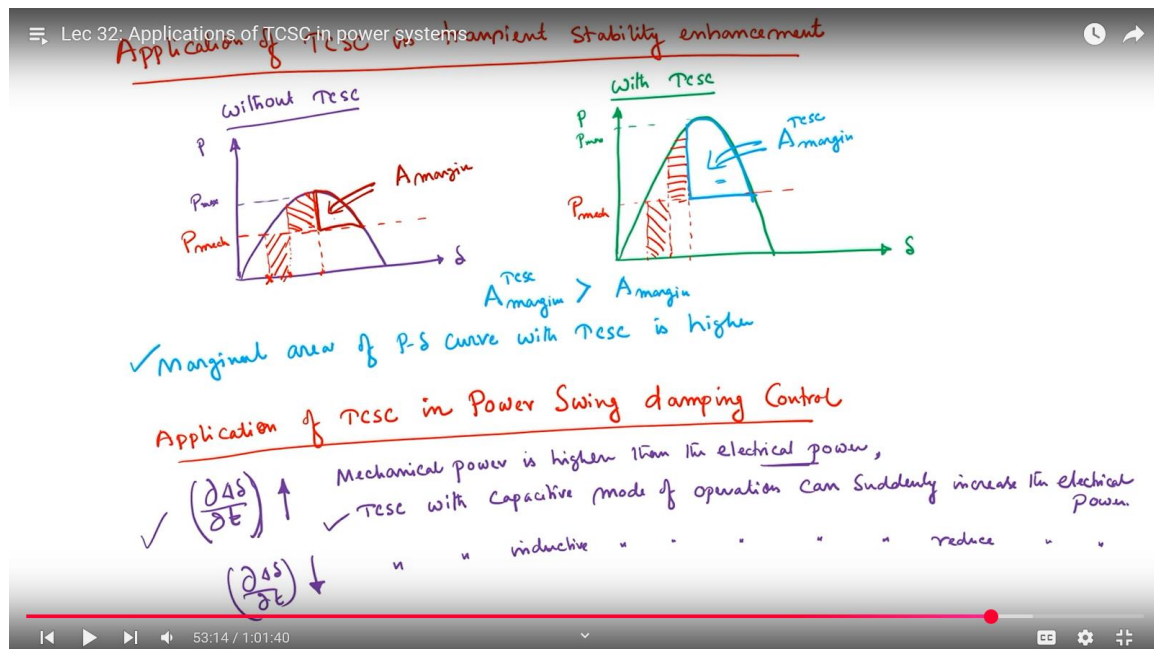 Lec 32: Applications of TCSC in power systems
Application of TCSC in transient stability enhancement
Without TCSC
P
Pmax
Pmech
A margin
δ
With TCSC
P
Pmax
Pmech
A margin TCSC
δ
A margin TCSC > A margin
✓ Marginal area of P-δ curve with TCSC is higher
Application of TCSC in Power Swing damping Control
✓ (∂Δδ/∂t) ↑
Mechanical power is higher than the electrical power,
✓ TCSC with capacitive mode of operation can suddenly increase the electrical power.
(∂Δδ/∂t) ↓
" " inductive " " " " " reduce " "
53:14 / 1:01:40
CC